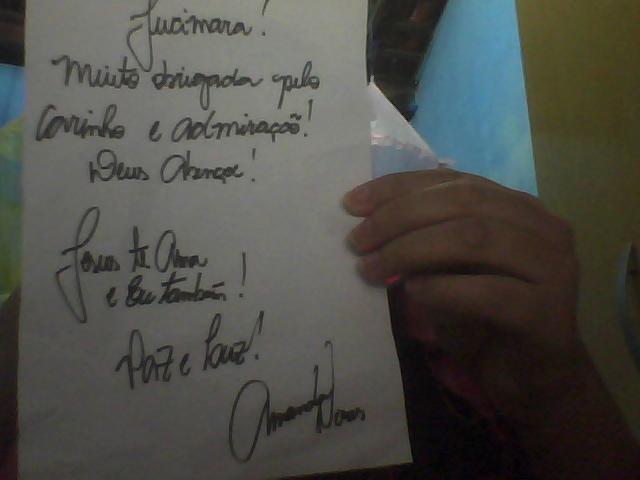 Jucimara!
Muito obrigada pelo
Carinho e admiração!
Deus Abençoe!
Jesus te Ama
e Eu também!
Paz e Luz!
Amanda